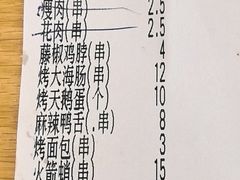 瘦肉(串) 2.5
花肉(串) 2.5
藤椒鸡脖(串) 4
烤大海肠(串) 12
烤天鹅蛋(个) 10
麻辣鸭舌(.串) 8
烤面包(串) 3
火箭蛸(串) 15